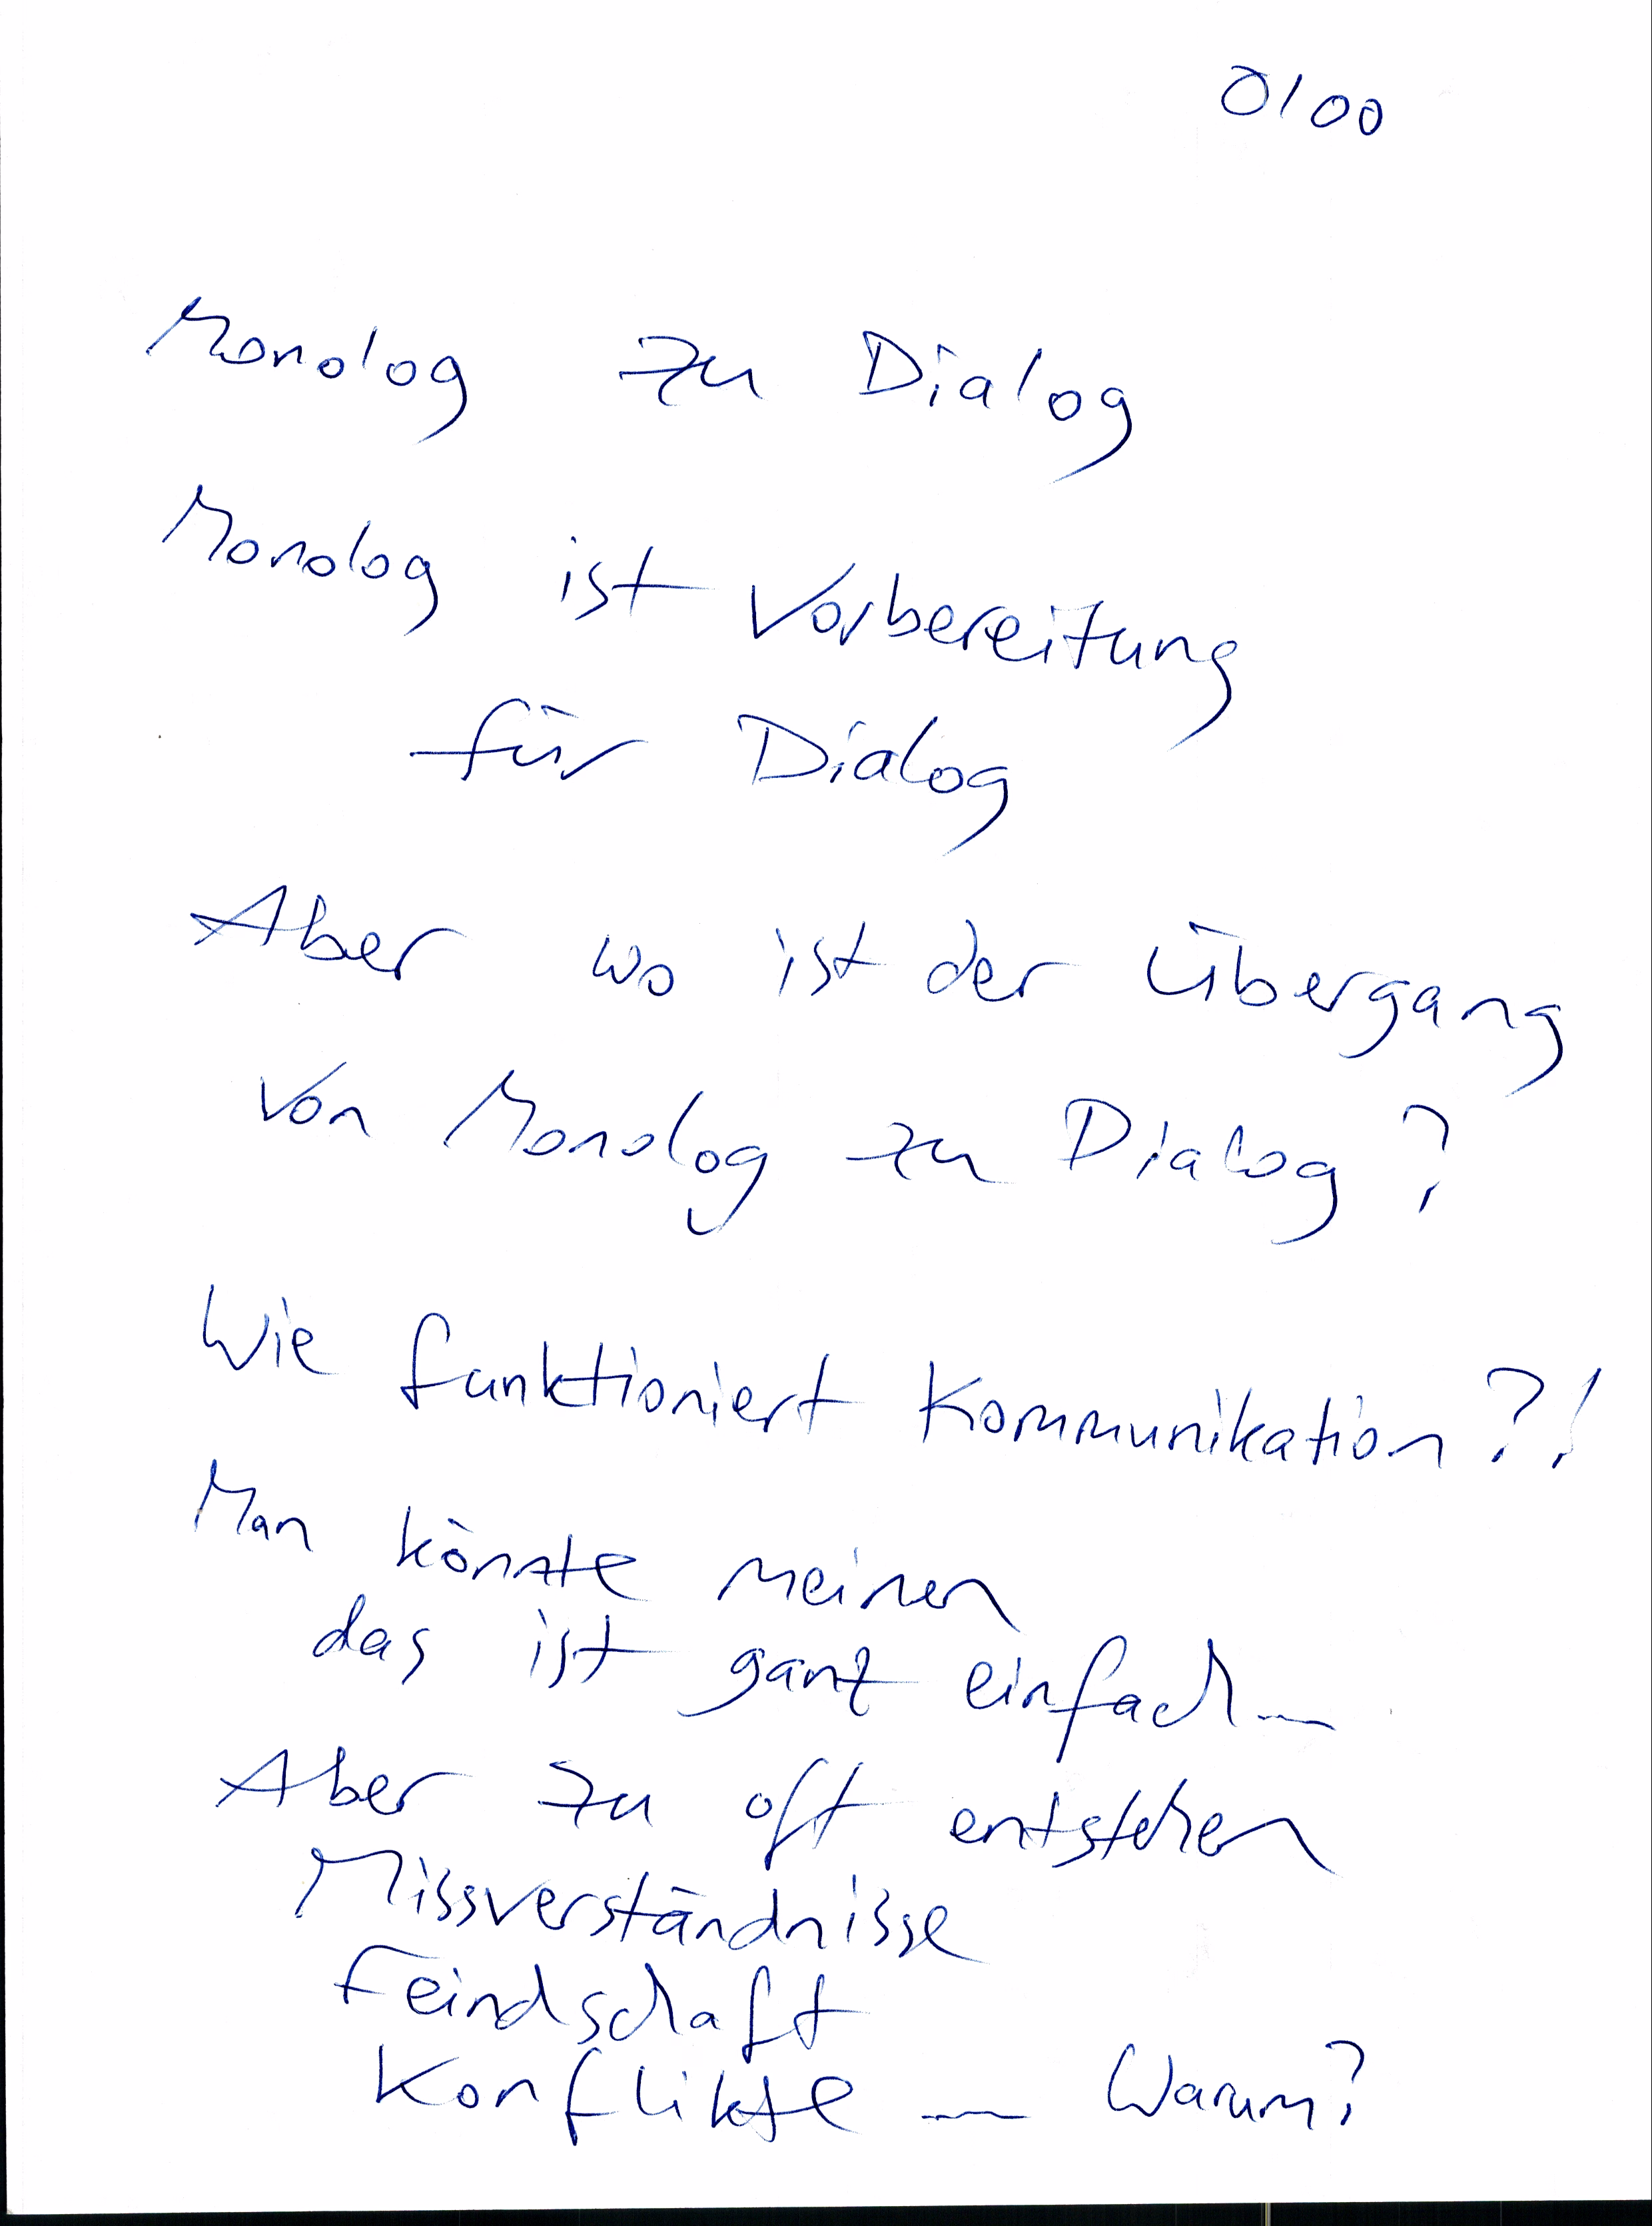 0100
Monolog zu Dialog
Monolog ist Vorbereitung
für Dialog
Aber wo ist der Übergang
von Monolog zu Dialog?
Wie funktioniert Kommunikation?!
Man könnte meinen
das ist ganz einfach...
Aber zu oft entstehen
Missverständnisse
Feindschaft
Konflikte ... Warum?